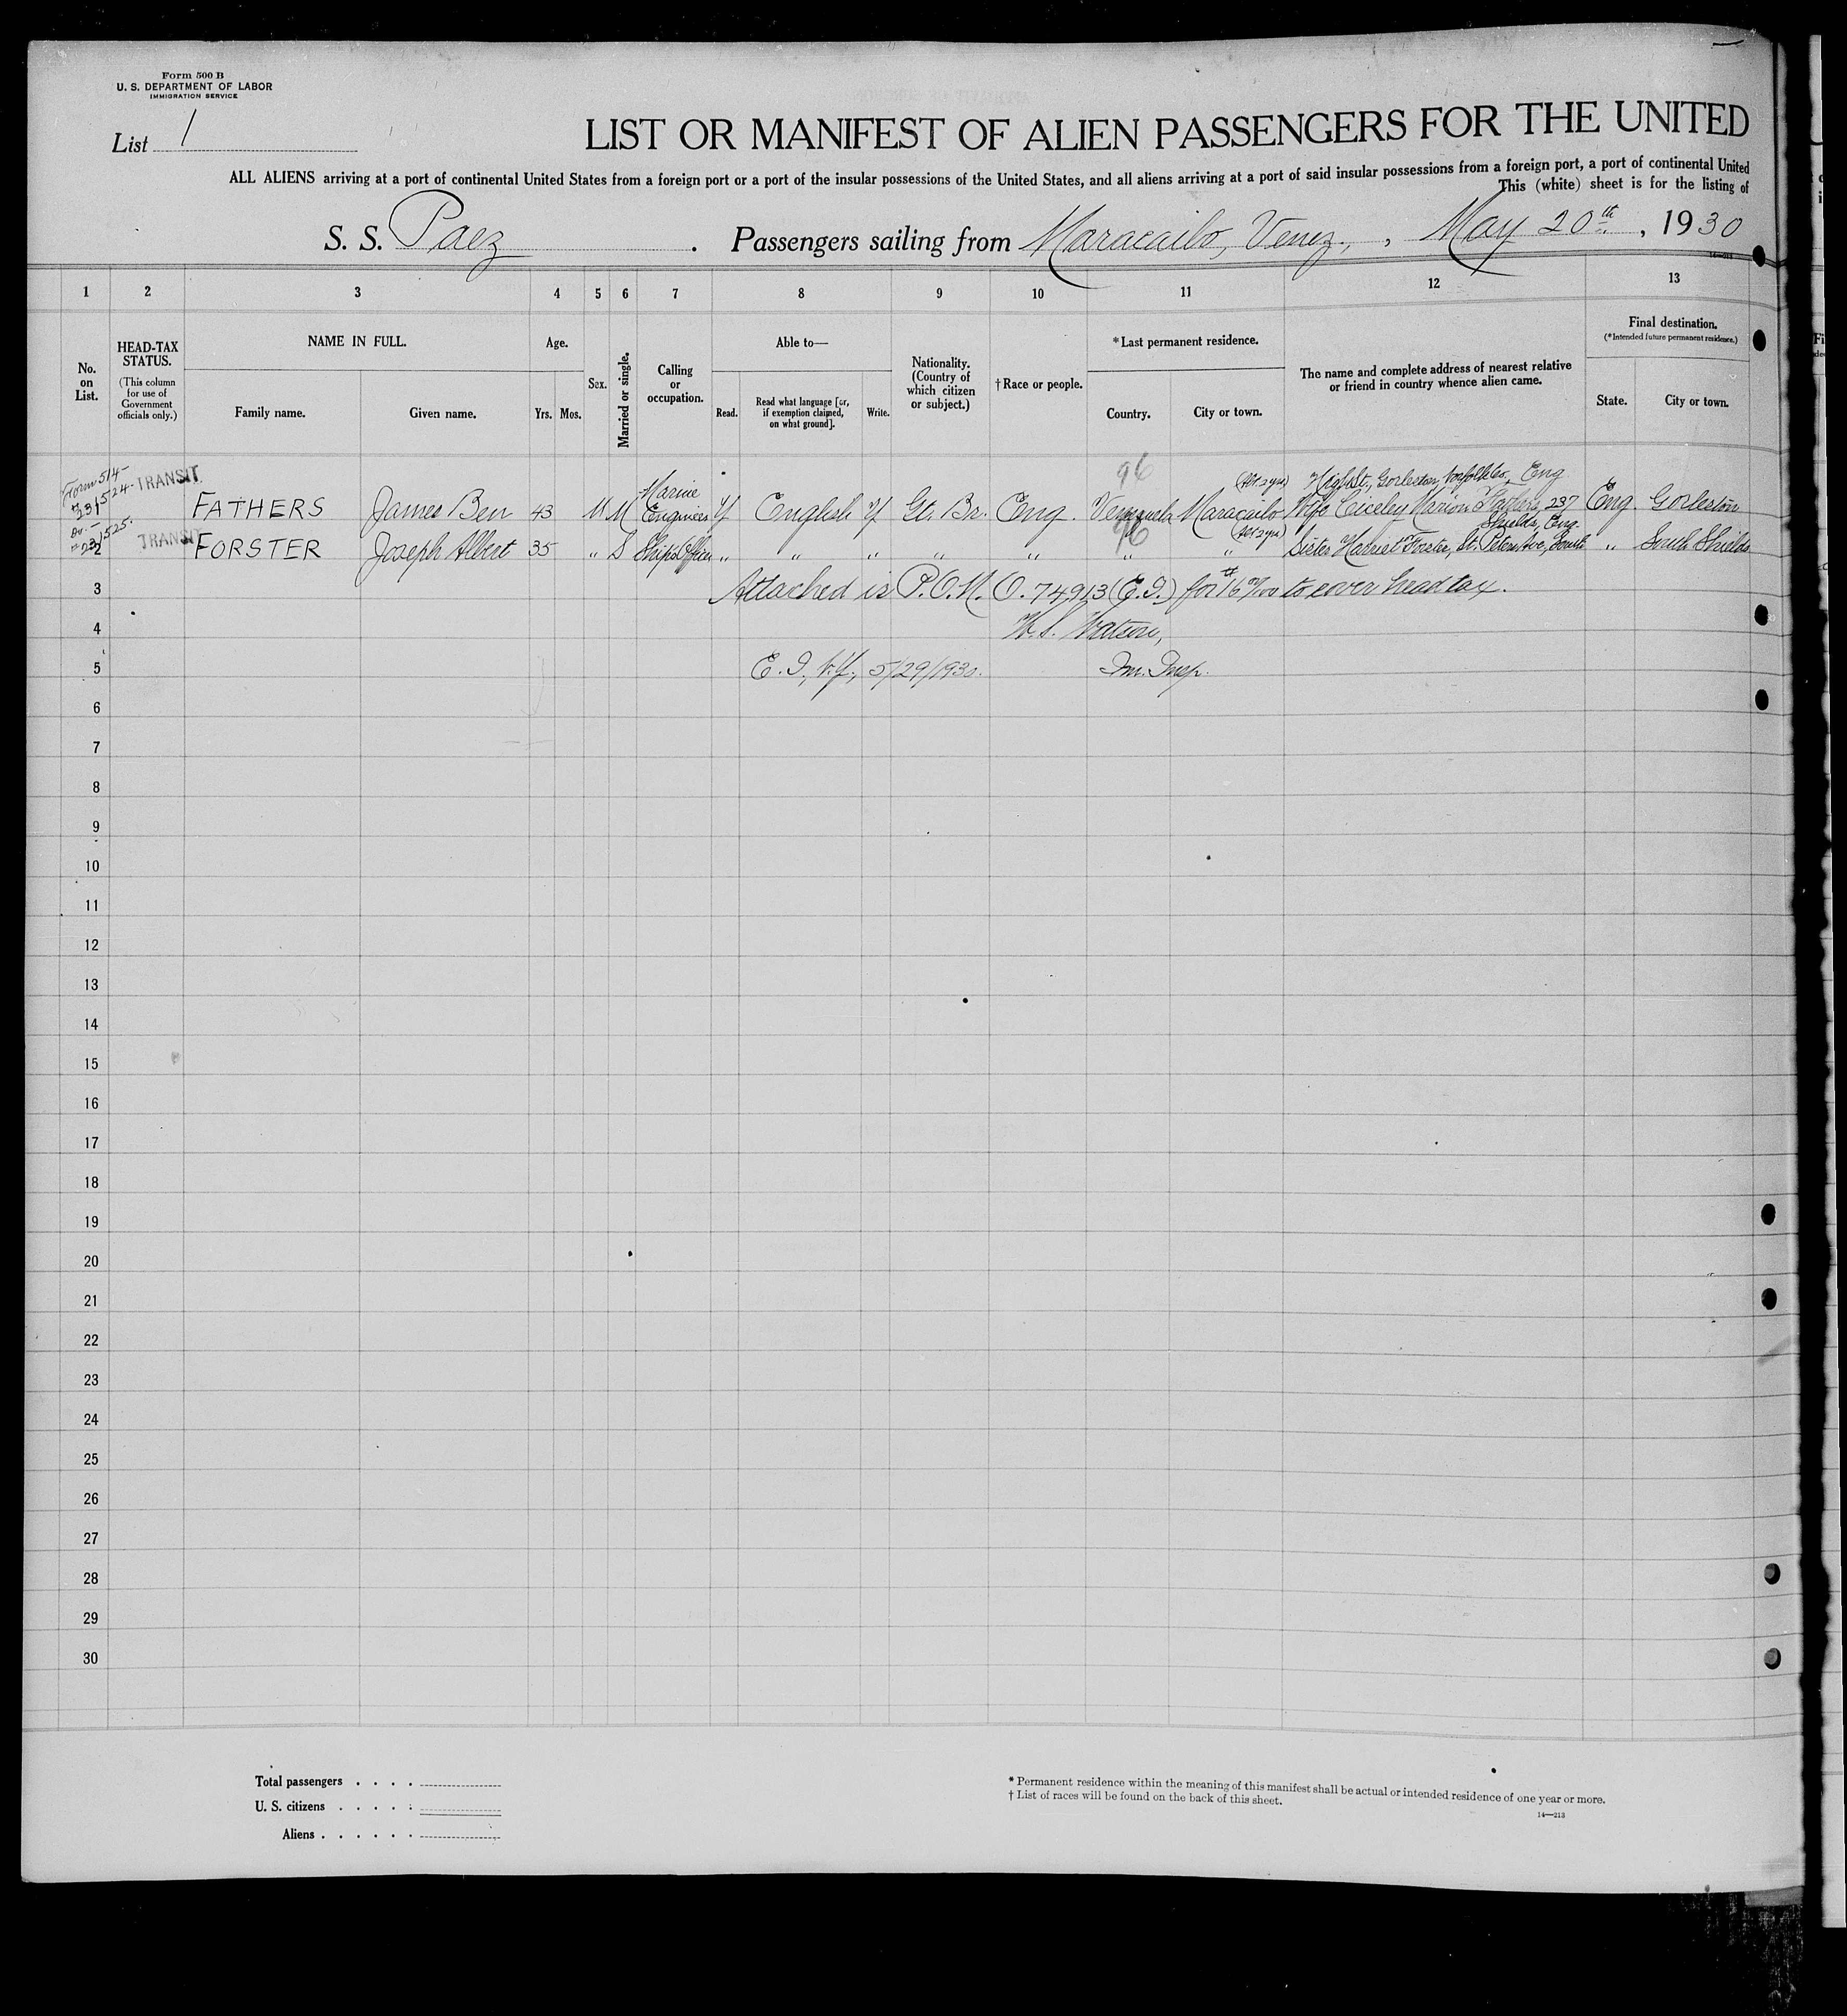 Form 500 B
U. S. DEPARTMENT OF LABOR
IMMIGRATION SERVICE
List 1
LIST OR MANIFEST OF ALIEN PASSENGERS FOR THE UNITED
ALL ALIENS arriving at a port of continental United States from a foreign port or a port of the insular possessions of the United States, and all aliens arriving at a port of said insular possessions from a foreign port, a port of continental United
This (white) sheet is for the listing of
S. S. Paez . Passengers sailing from Maracaibo, Venez., , May 20th , 1930
14—213
1 2 3 4 5 6 7 8 9 10 11 12 13
No. on List.
HEAD-TAX STATUS.
(This column for use of Government officials only.)
NAME IN FULL.
Family name. Given name.
Age.
Yrs. Mos.
Sex.
Married or single.
Calling or occupation.
Able to—
Read. Read what language [or, if exemption claimed, on what ground]. Write.
Nationality. (Country of which citizen or subject.)
†Race or people.
*Last permanent residence.
Country. City or town.
The name and complete address of nearest relative or friend in country whence alien came.
Final destination.
(*Intended future permanent residence.)
State. City or town.
Form 514-
231524- TRANSIT
96
High St., Gorleston, Eng
FATHERS James Ben 43 M M Marine Engineer Y English Y Gt. Br. Eng. Venezuela Maracaibo Wife Ciceley Marion Fathers, 237 Eng. Gorleston
Do.-
231525.
TRANSIT
96
Shields, Eng.
2 FORSTER Joseph Albert 35 " S Ship's Officer " " " " " " " Sister Harriet Forster, St. Peters Ave, South " South Shields
3 Attached is P.O.M.O. 74913 (E.I.) for $16 00/100 to cover head tax.
4 W. S. Watson,
5 E. I., N.Y., 5/29/1930. Im. Insp.
6
7
8
9
10
11
12
13
14
15
16
17
18
19
20
21
22
23
24
25
26
27
28
29
30
Total passengers . . . .
U. S. citizens . . . . .
Aliens . . . . . .
* Permanent residence within the meaning of this manifest shall be actual or intended residence of one year or more.
† List of races will be found on the back of this sheet.
14—213